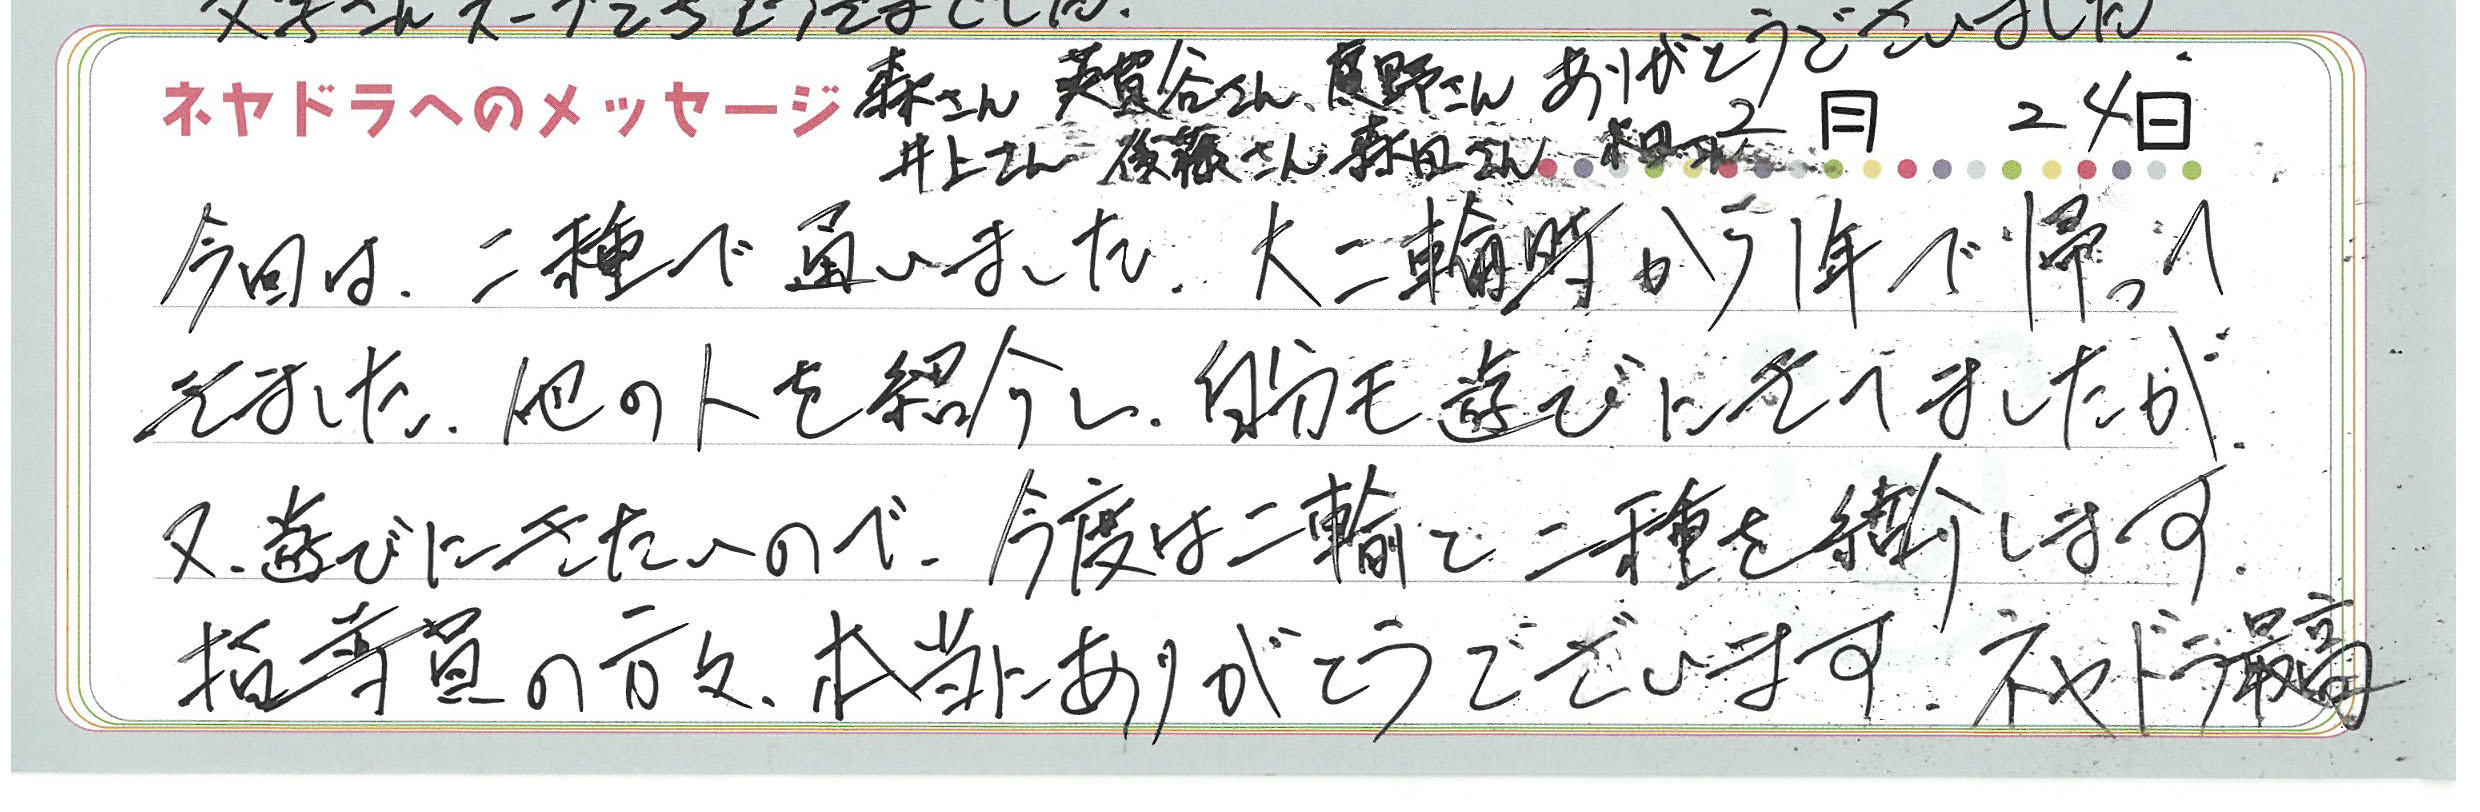 さんスープごちそうさまでした.
ネヤドラへのメッセージ
森さん 英賀谷さん、夏野さん ありがとうございました.
2月 24日
井上さん 後藤さん 森田さん
今回は、二種で通いました。大二輪時から1年で帰って
きました。他の人を紹介し、自分も遊びにきてましたが、
又、遊びにきたいので、今度は二輪と二種を紹介します。
指導員の方々、本当にありがとうございます。ネヤドラ最高